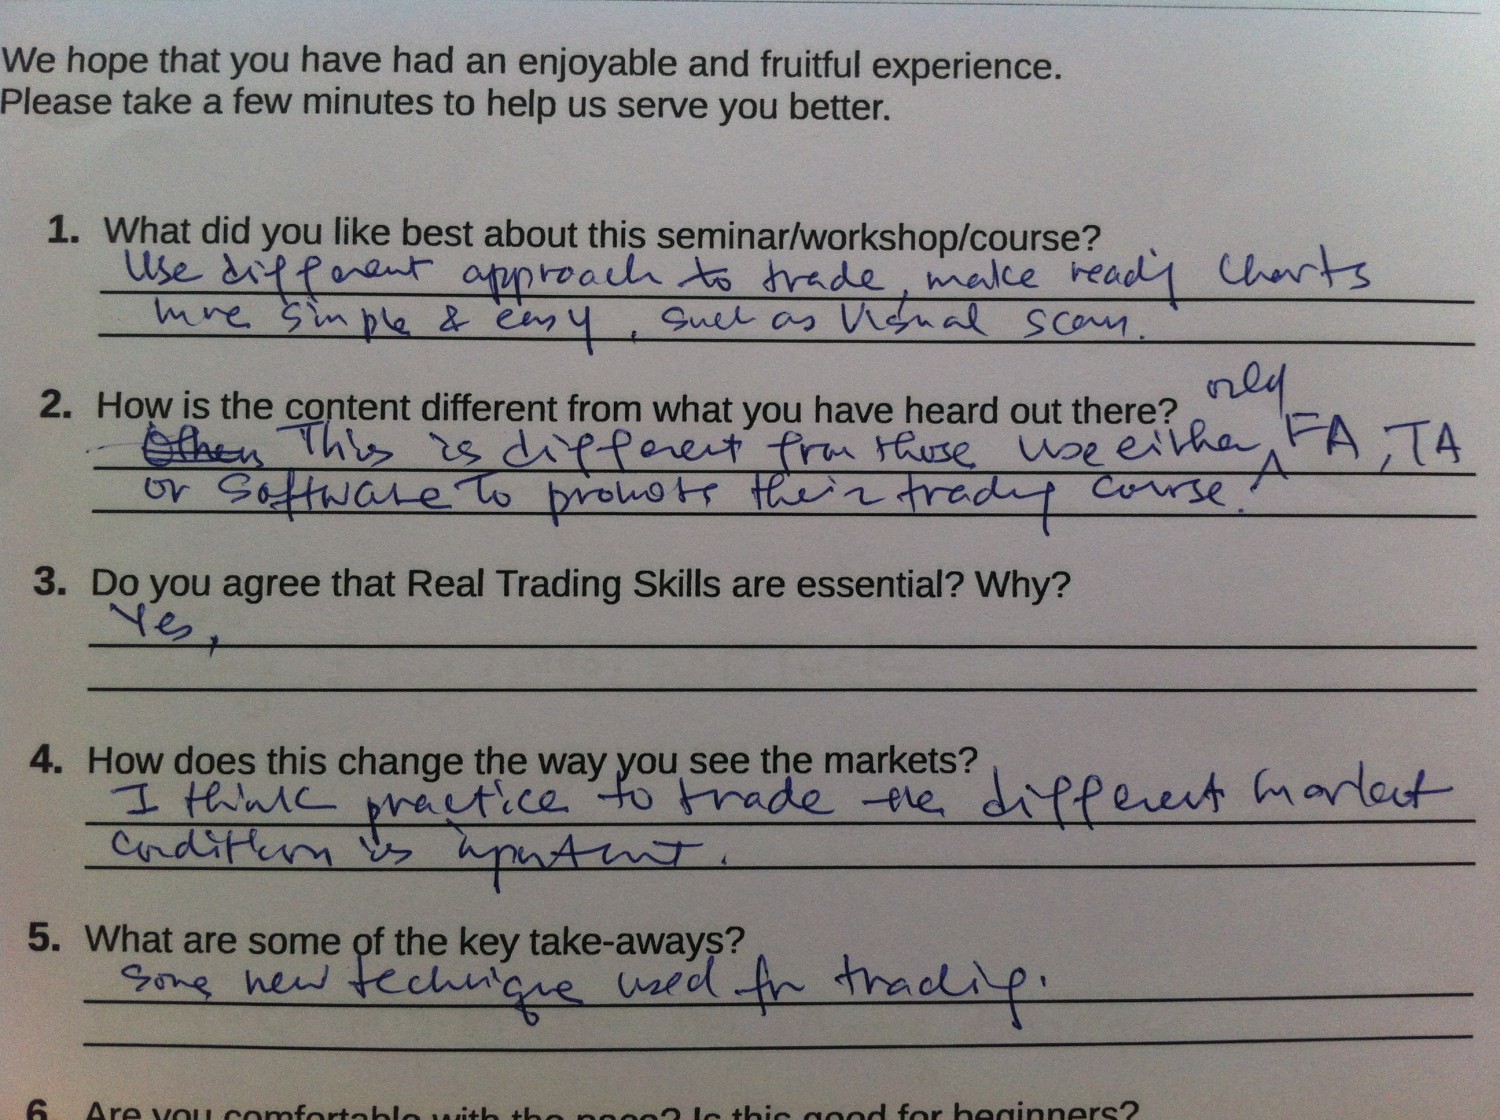 We hope that you have had an enjoyable and fruitful experience.
Please take a few minutes to help us serve you better.
1. What did you like best about this seminar/workshop/course?
Use different approach to trade, make ready charts
more simple & easy, such as Visual scan.
2. How is the content different from what you have heard out there?
only
This is different from those use either ^ FA, TA
or software to promote their trading course.
3. Do you agree that Real Trading Skills are essential? Why?
Yes,
4. How does this change the way you see the markets?
I think practice to trade the different market
condition is important.
5. What are some of the key take-aways?
Some new technique used for trading.
6. Are you comfortable with the pace? Is this good for beginners?